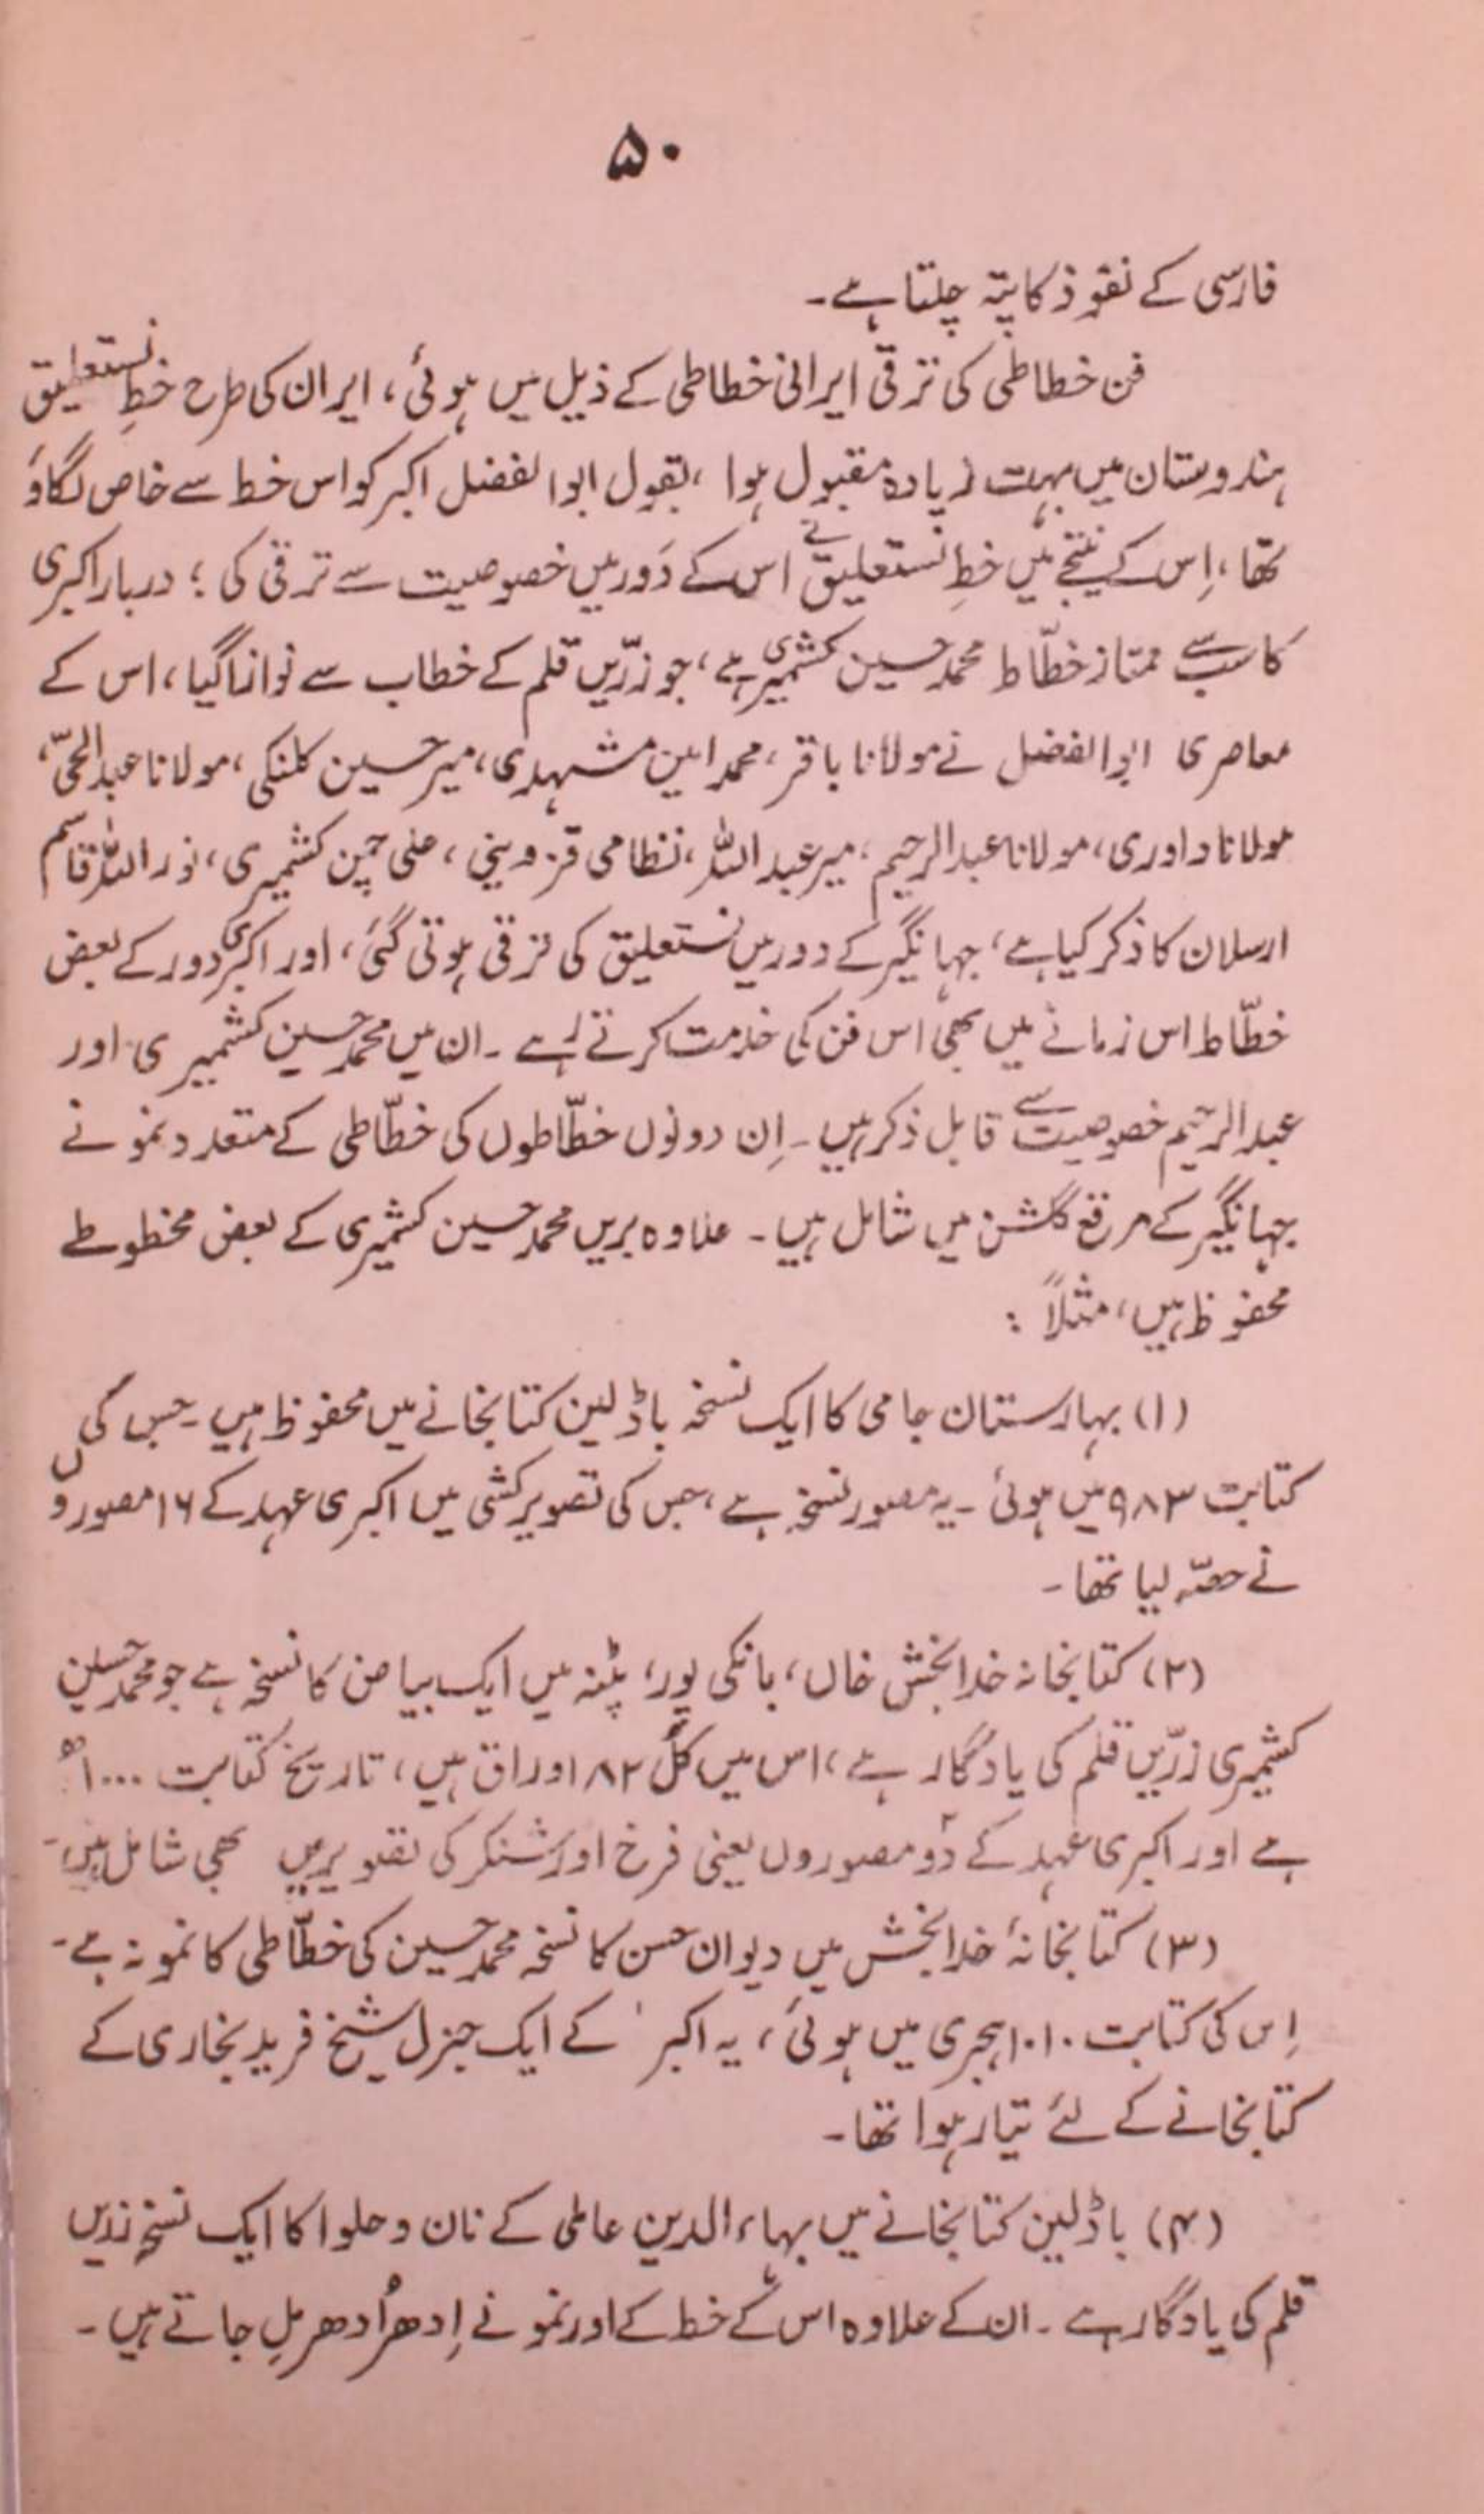 ۵۰
فارسی کے نفوذ کا پتہ چلتا ہے۔
فن خطاطی کی ترقی ایرانی خطاطی کے ذیل میں ہوئی، ایران کی طرح خطِ نستعلیق
ہندوستان میں بہت زیادہ مقبول ہوا، بقول ابوالفضل اکبر کو اس خط سے خاص لگاؤ
تھا، اِس کے نتیجے میں خطِ نستعلیق نے اس کے دَور میں خصوصیت سے ترقی کی؛ دربار اکبری
کا سب سے ممتاز خطّاط محمد حسین کشمیری ہے، جو زرّیں قلم کے خطاب سے نوازا گیا، اس کے
معاصری ابوالفضل نے مولانا باقر، محمد امین مشہدی، میر حسین کلنکی، مولانا عبدالحیّ،
مولانا داوری، مولانا عبدالرحیم، میر عبداللہ، نظامی قزوینی، علی چمن کشمیری، نوراللہ قاسم
ارسلان کا ذکر کیا ہے، جہانگیر کے دور میں نستعلیق کی ترقی ہوتی گئی، اور اکبری دور کے بعض
خطّاط اس زمانے میں بھی اس فن کی خدمت کرتے رہے۔ ان میں محمد حسین کشمیری اور
عبدالرحیم خصوصیت سے قابل ذکر ہیں۔ اِن دونوں خطّاطوں کی خطّاطی کے متعدد نمونے
جہانگیر کے مرقع گلشن میں شامل ہیں۔ علاوہ بریں محمد حسین کشمیری کے بعض مخطوطے
محفوظ ہیں، مثلاً :
(۱) بہارستان جامی کا ایک نسخہ باڈلین کتابخانے میں محفوظ ہیں۔ جس کی
کتابت ۹۸۳ میں ہوئی۔ یہ مصور نسخہ ہے، جس کی تصویر کشی میں اکبری عہد کے ۱۶ مصوروں
نے حصّہ لیا تھا۔
(۲) کتابخانہ خدابخش خاں، بانکی پور، پٹنہ میں ایک بیاض کا نسخہ ہے جو محمد حسین
کشمیری زرّیں قلم کی یادگار ہے، اس میں کل ۸۲ اوراق ہیں، تاریخ کتابت ۱۰۰۰ھ
ہے اور اکبری عہد کے دو مصوروں یعنی فرخ اور شنکر کی تصویریں بھی شامل ہیں۔
(۳) کتابخانۂ خدابخش میں دیوان حسن کا نسخہ محمد حسین کی خطّاطی کا نمونہ ہے۔
اِس کی کتابت ۱۰۱۰ ہجری میں ہوئی، یہ اکبر کے ایک جنرل شیخ فرید بخاری کے
کتابخانے کے لئے تیار ہوا تھا۔
(۴) باڈلین کتابخانے میں بہاءالدین عاملی کے نان و حلوا کا ایک نسخہ زریں
قلم کی یادگار ہے۔ ان کے علاوہ اس کے خط کے اور نمونے اِدھر اُدھر مِل جاتے ہیں۔